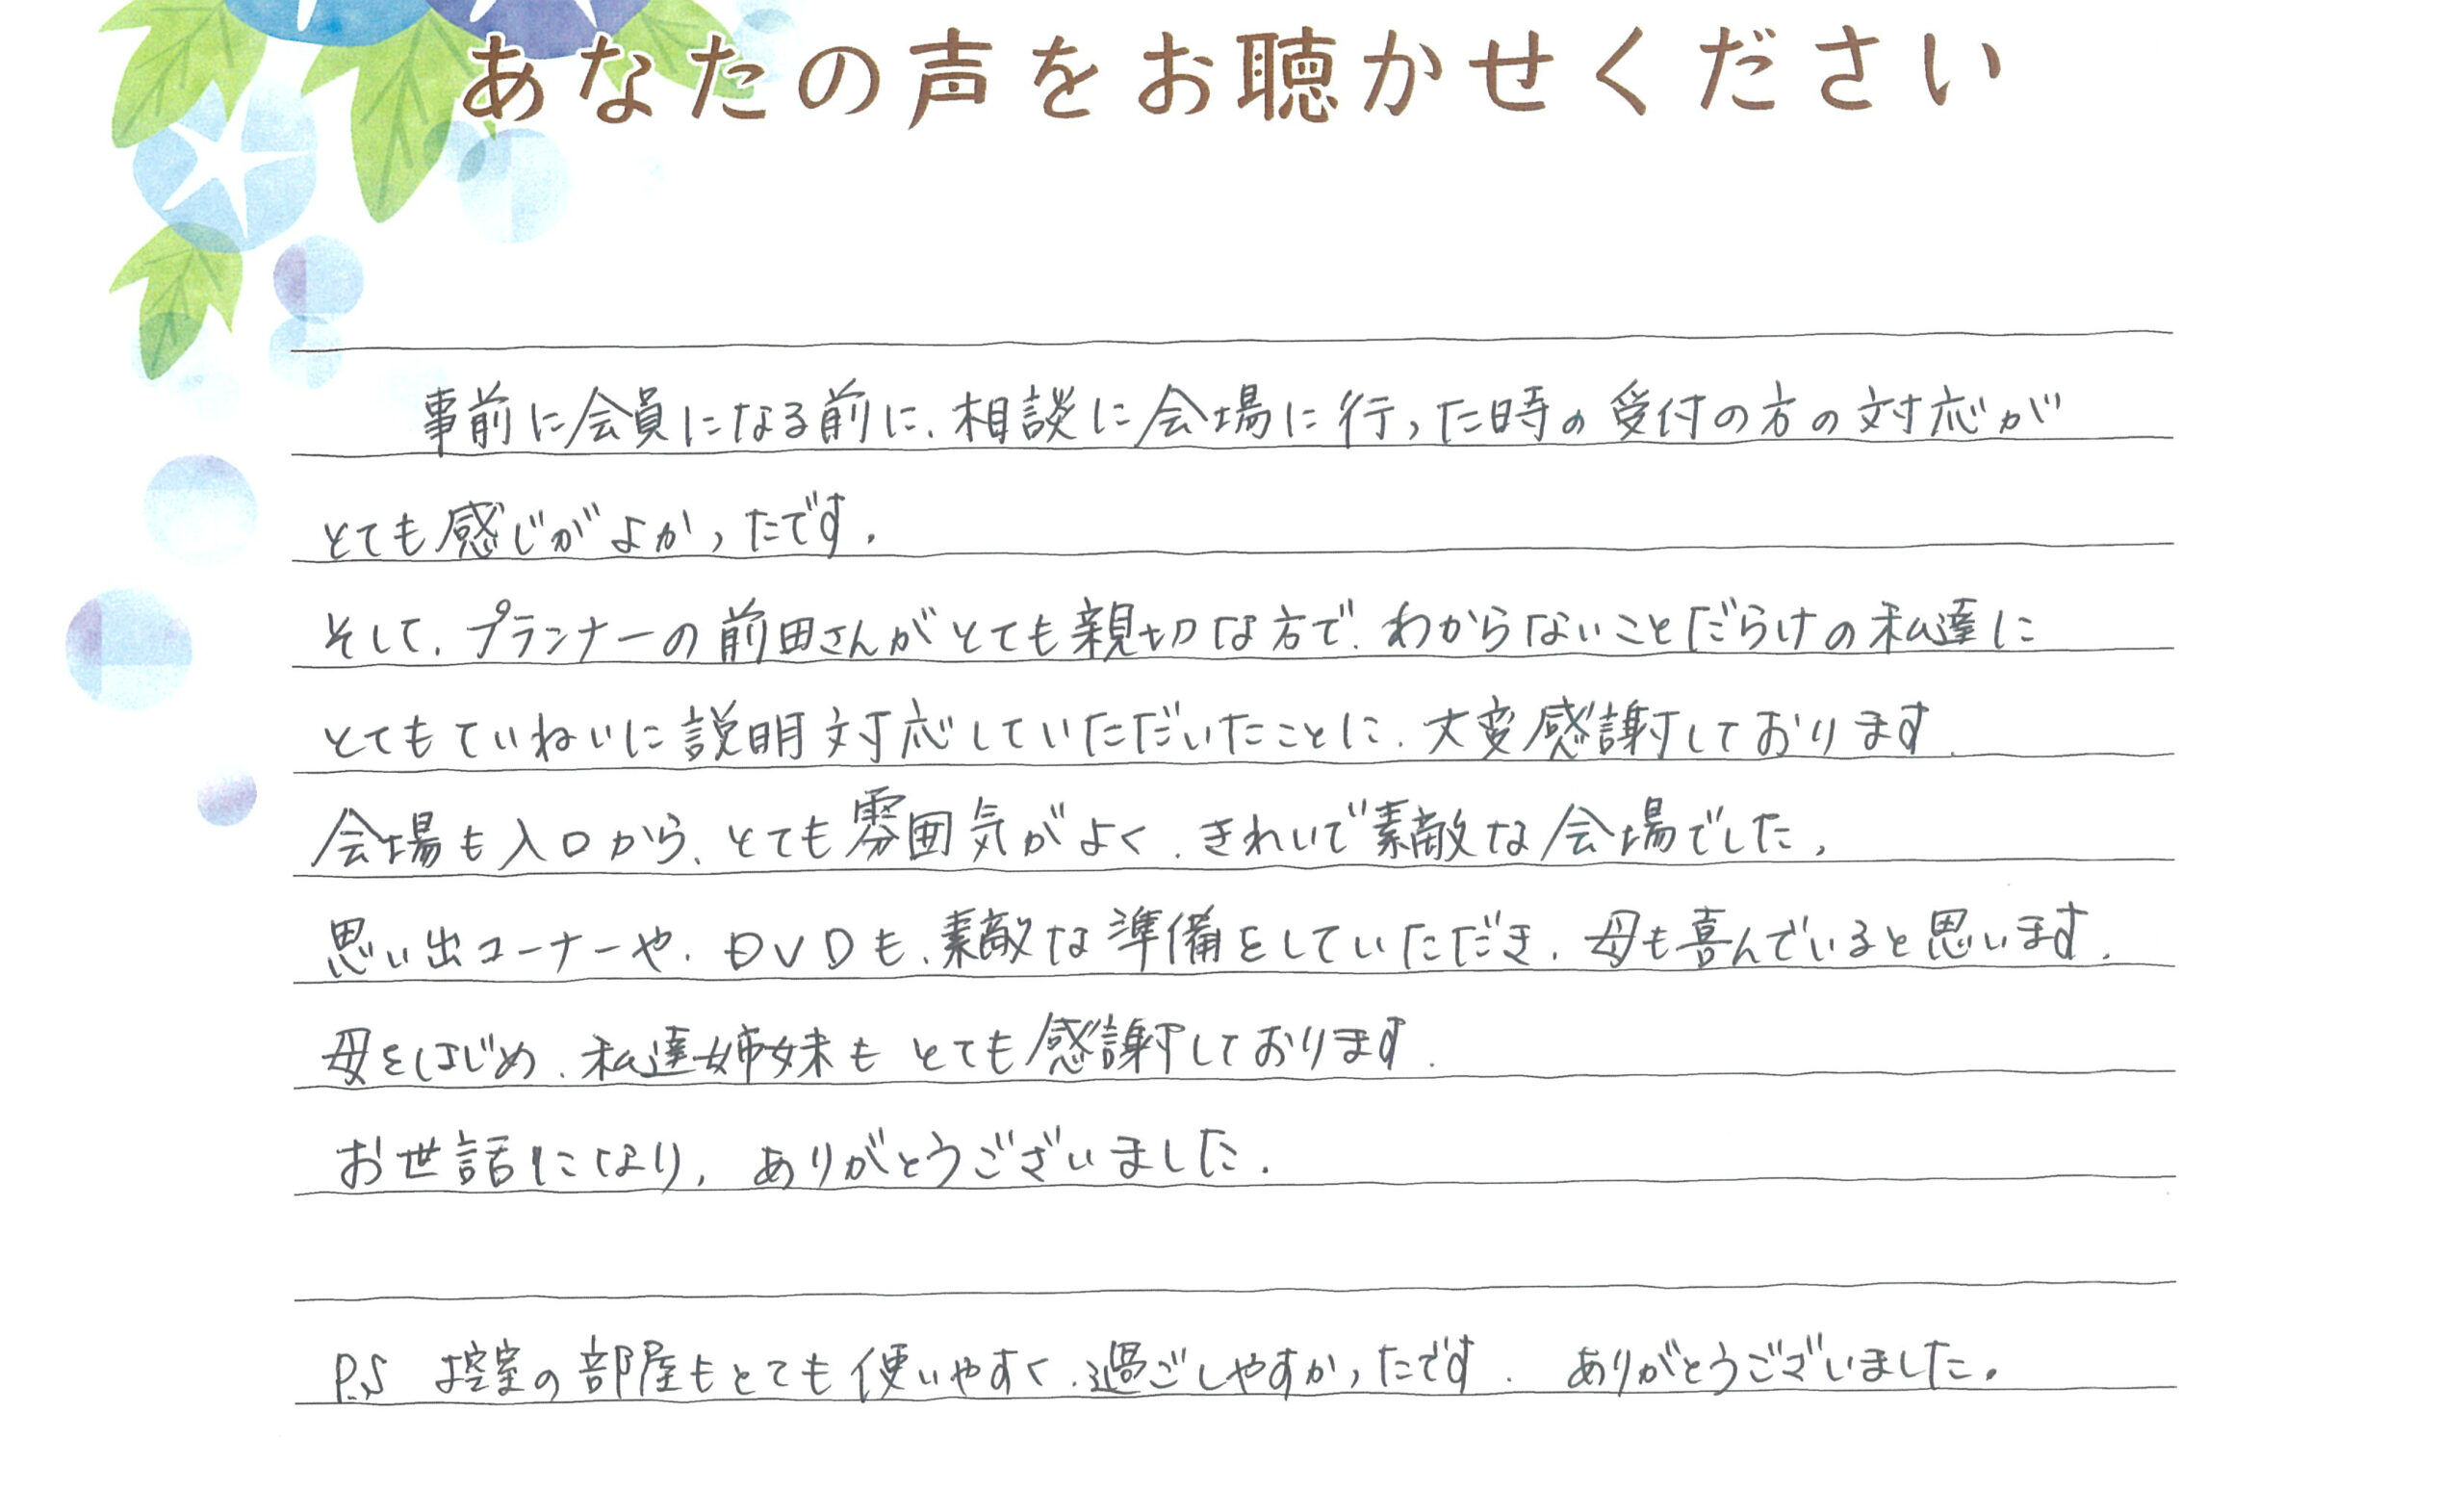 あなたの声をお聴かせください
事前に会員になる前に、相談に会場に行った時の受付の方の対応が
とても感じがよかったです。
そして、プランナーの前田さんがとても親切な方で、わからないことだらけの私達に
とてもていねいに説明対応していただいたことに、大変感謝しております。
会場も入口から、とても雰囲気がよく、きれいで素敵な会場でした。
思い出コーナーや、DVDも、素敵な準備をしていただき、母も喜んでいると思います。
母をはじめ、私達姉妹もとても感謝しております。
お世話になり、ありがとうございました。
P.S 控室の部屋もとても使いやすく、過ごしやすかったです。 ありがとうございました。